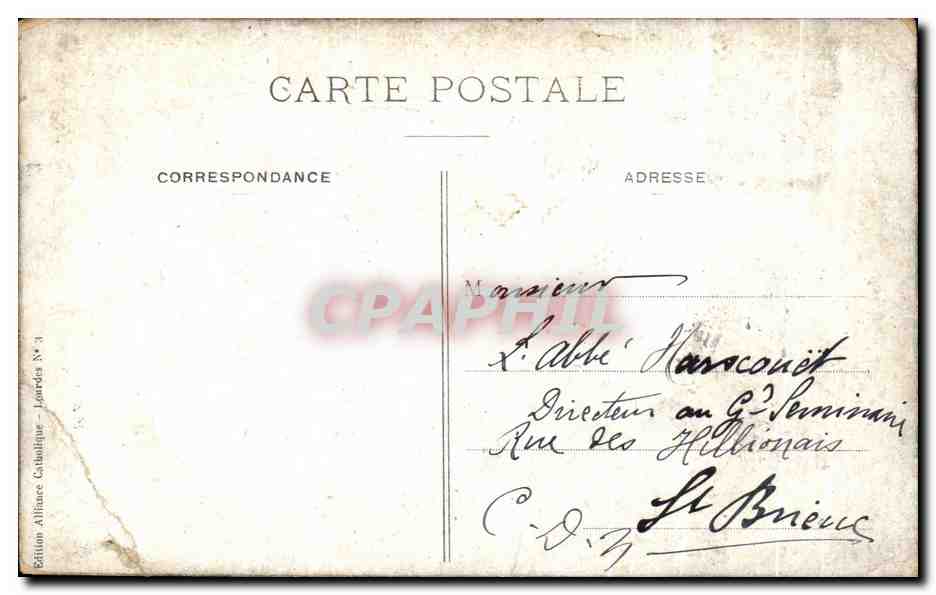 CARTE POSTALE
CORRESPONDANCE
ADRESSE
Monsieur
L'abbé Harscouët
Directeur au Gd Seminaire
Rue des Hillionais
St Brieuc
C-D-N
Edition Alliance Catholique - Lourdes N° 3
CPAPHIL